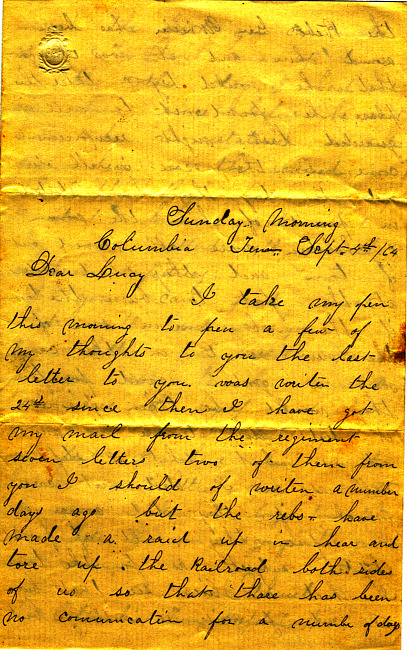 Sunday Morning
Columbia Tenn. Sept. 4th /64
Dear Lucy
I take my pen
this morning to pen a few of
my thoughts to you the last
letter to you was writen the
24th since then I have got
my mail from the regiment
seven letters two of them from
you I should of writen a number
days ago but the rebs have
made a raid up in hear and
tore up the Railroad both sides
of us so that thare has been
no comunication for a number of days